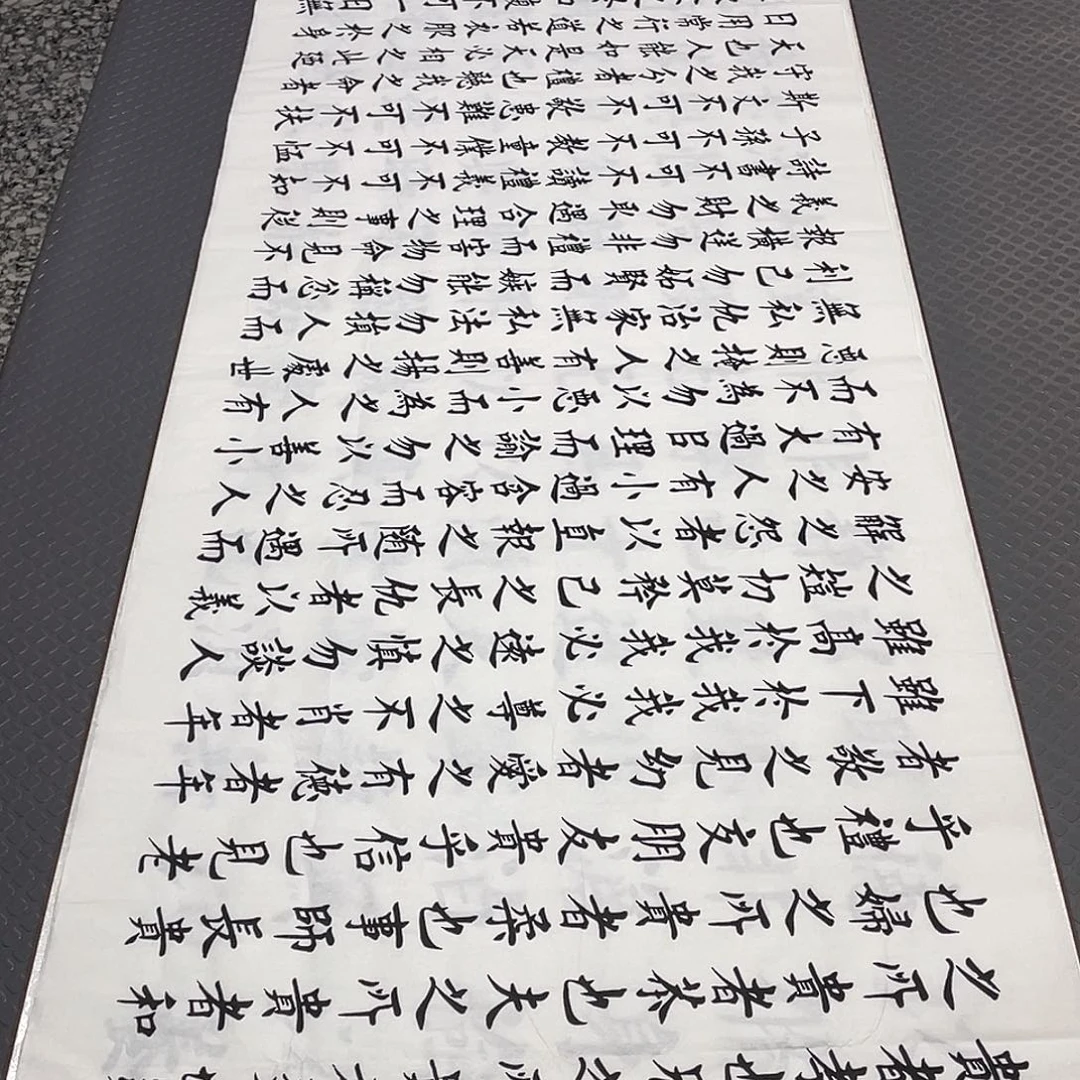 貴者孝也兄之所
之所貴者恭也夫之所貴者和
也婦之所貴者柔也事師長貴
乎禮也交朋友貴乎信也見老
者敬之見幼者愛之有德者年
雖下於我我必尊之不肖者年
雖高於我我必遠之慎勿談人
之短切莫矜己之長仇者以義
解之怨者以直報之隨所遇而
安之人有小過含容而忍之人
有大過㠯理而諭之勿以善小
而不為勿以惡小而為之人有
惡則掩之人有善則揚之處世
無私仇治家無私法勿損人而
利己勿妬賢而嫉能勿稱忿而
報橫逆勿非禮而害物命見不
義之財勿取遇合理之事則從
詩書不可不讀禮義不可不知
子孫不可不教童僕不可不恤
斯文不可不敬患難不可不扶
守我之分者禮也聽我之命者
天也人能如是天必相之此廼
日用常行之道若衣服之於身